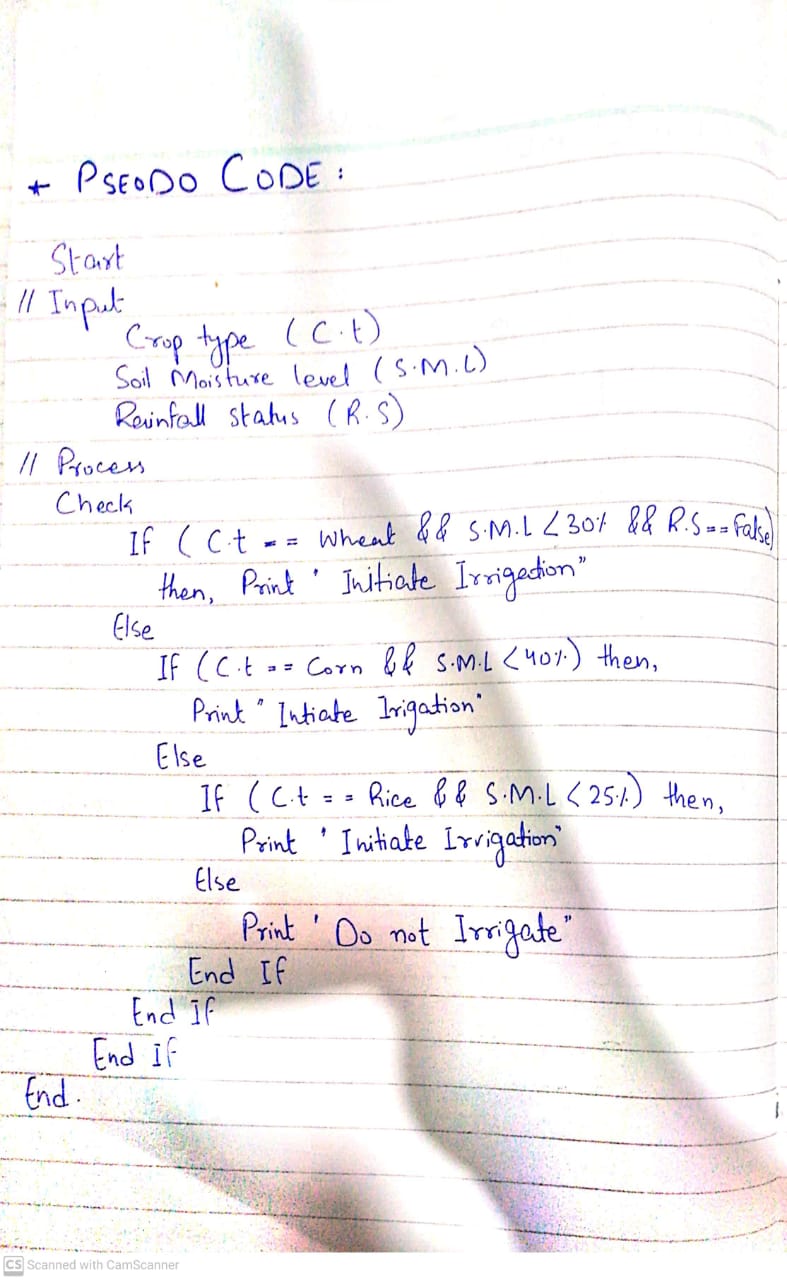 * PSEODO CODE :
Start
// Input
Crop type (C.t)
Soil Moisture level (S.M.L)
Rainfall status (R.S)
// Process
Check
If (C.t == Wheat && S.M.L < 30% && R.S == False)
then, Print " Initiate Irrigation"
Else
If (C.t == Corn && S.M.L < 40%) then,
Print " Intiate Irigation"
Else
If (C.t == Rice && S.M.L < 25%) then,
Print " Initiate Irrigation"
Else
Print " Do not Irrigate"
End If
End If
End If
End.
CS Scanned with CamScanner